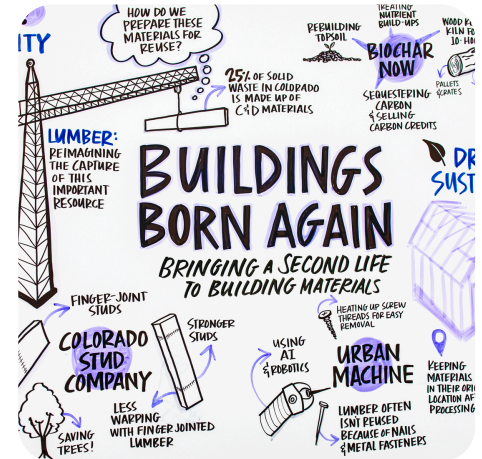 ITY
HOW DO WE
PREPARE THESE
MATERIALS FOR
REUSE?
25% OF SOLID
WASTE IN COLORADO
IS MADE UP OF
C&D MATERIALS
REBUILDING
TOPSOIL
TREATING
NUTRIENT
BUILD-UPS
BIOCHAR
NOW
KILN FO
10-HO
PALLETS
& CRATES
SEQUESTERING
CARBON
& SELLING
CARBON CREDITS
LUMBER:
REIMAGINING
THE CAPTURE
OF THIS
IMPORTANT
RESOURCE
BUILDINGS
BORN AGAIN
BRINGING A SECOND LIFE
TO BUILDING MATERIALS
DR
SUST
FINGER-JOINT
STUDS
COLORADO
STUD
COMPANY
STRONGER
STUDS
LESS
WARPING
WITH FINGER JOINTED
LUMBER
SAVING
TREES!
HEATING UP SCREW
THREADS FOR EASY
REMOVAL
USING
AI
& ROBOTICS
URBAN
MACHINE
LUMBER OFTEN
ISN'T REUSED
BECAUSE OF NAILS
& METAL FASTENERS
KEEPING
MATERIALS
IN THEIR ORI
LOCATION AF
PROCESSING